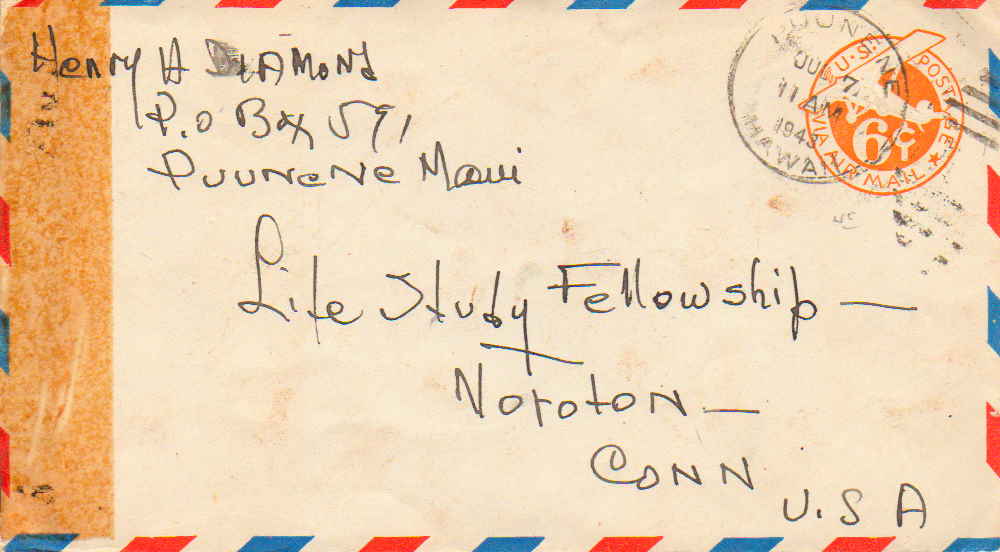 Henry H Diamond
P.O Box 591
Puunene Maui
PUUNENE
JUL 7
11 AM
1943
HAWAII
U.S. POSTAGE
6¢
VIA AIR MAIL
Life Study Fellowship —
Noroton —
Conn
U.S A